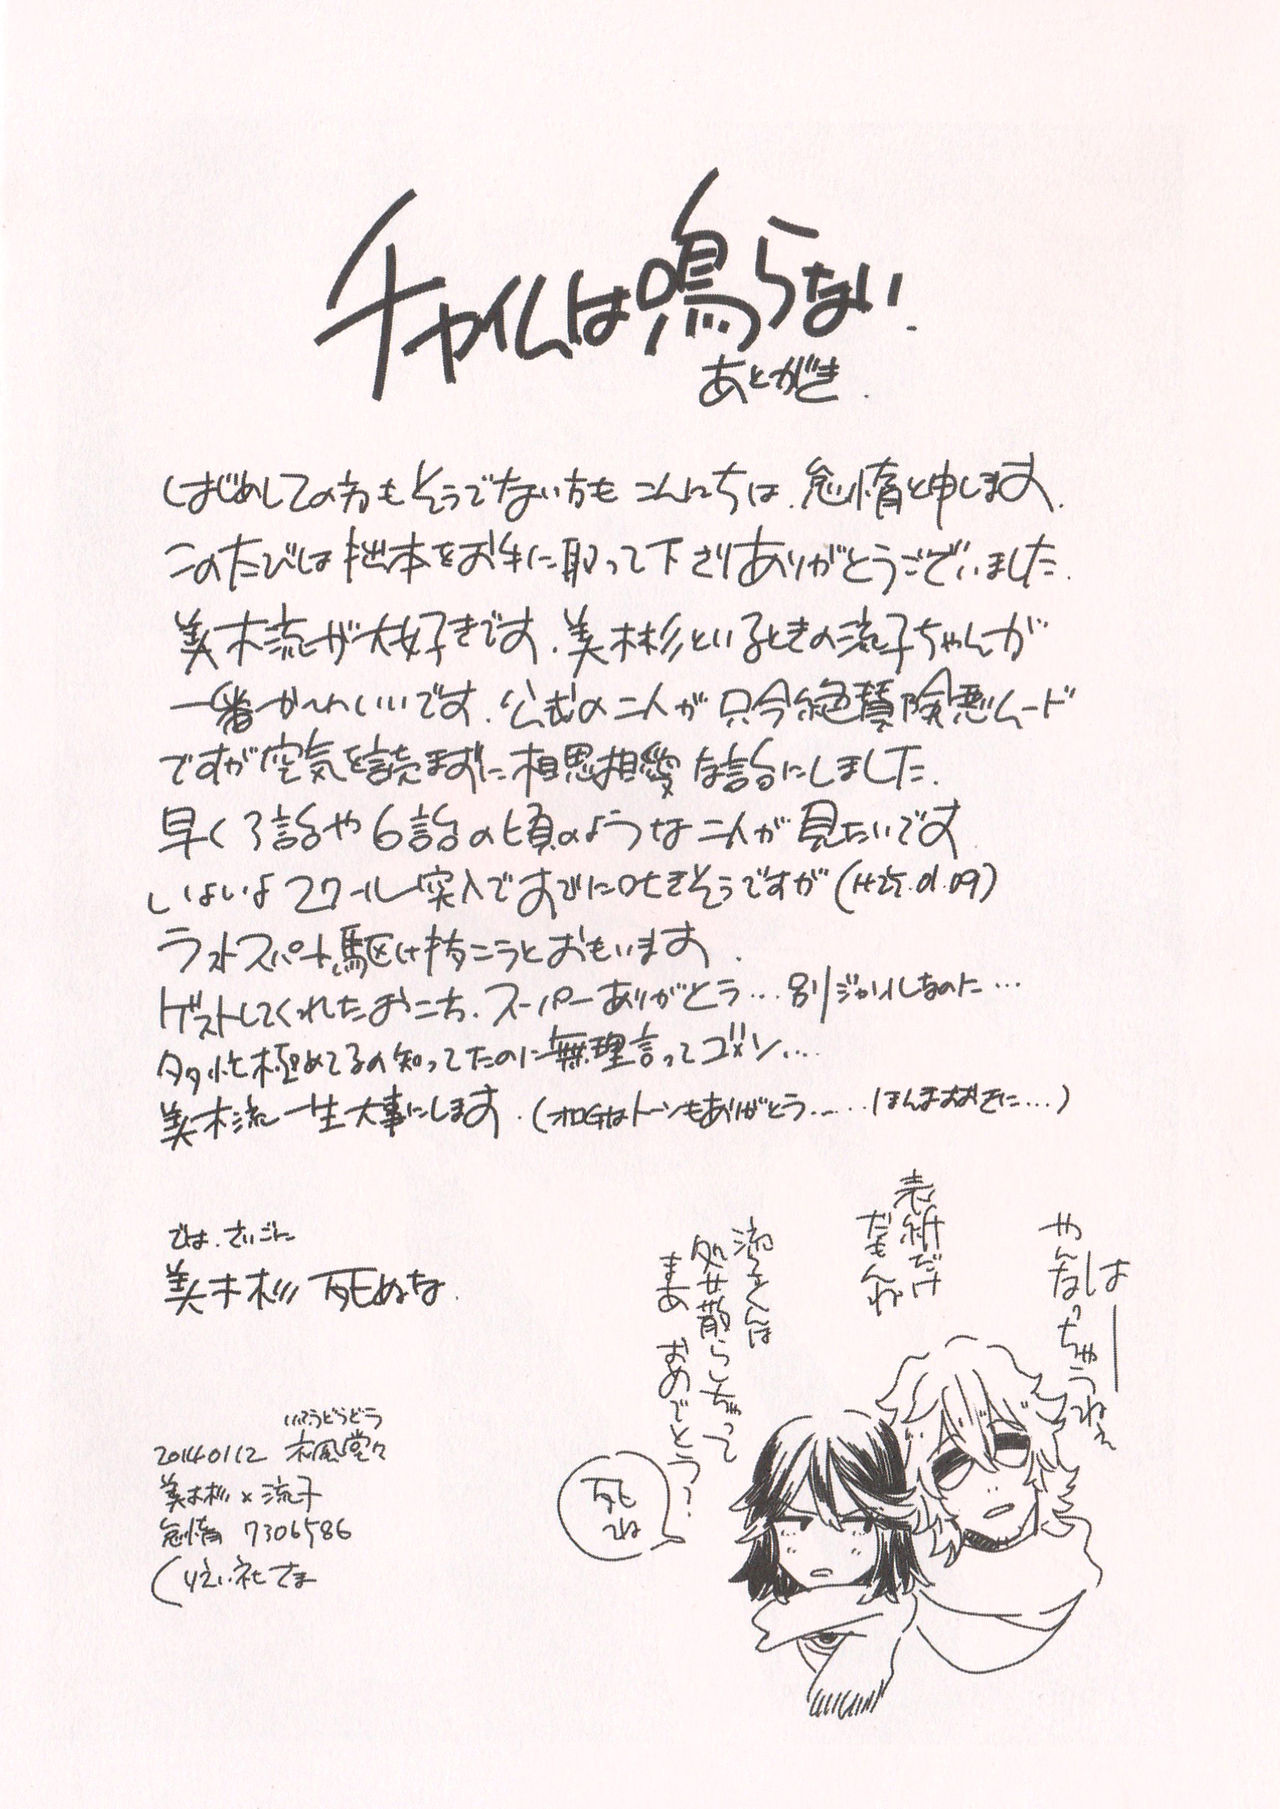 チャイムは鳴らない.
あとがき.
はじめしての方もそうでない方もこんにちは.怠惰と申します.
このたびは拙本をお手に取って下さりありがとうございました.
美木流が大好きです.美木杉といるときの流子ちゃんが
一番かわいいです.公式の二人が只今絶賛険悪ムード
ですが空気を読まずに相思相愛な話にしました.
早く3話や6話の頃のような二人が見たいです
いよいよ2クール突入ですでに吐きそうですが(H25.01.09)
ラストスパート駆け抜こうとおもいます.
ゲストしてくれたおこち.スーパーありがとう…別ジャンルなのに…
多忙極めてるの知ってたのに無理言ってゴメン….
美木流一生大事にします.(トーンもありがとう……ほんまおおきに…)
では.さいごに
美木杉死ぬな.
はー
や気っちゃうねぇ
表紙だけ
だもんね
流子くんは
処女散らしちゃって
まあ おめでとう?
死ね
いふうどうどう
20140112 衣風堂々
美木杉×流子
怠惰 7306586
くりえい社さま